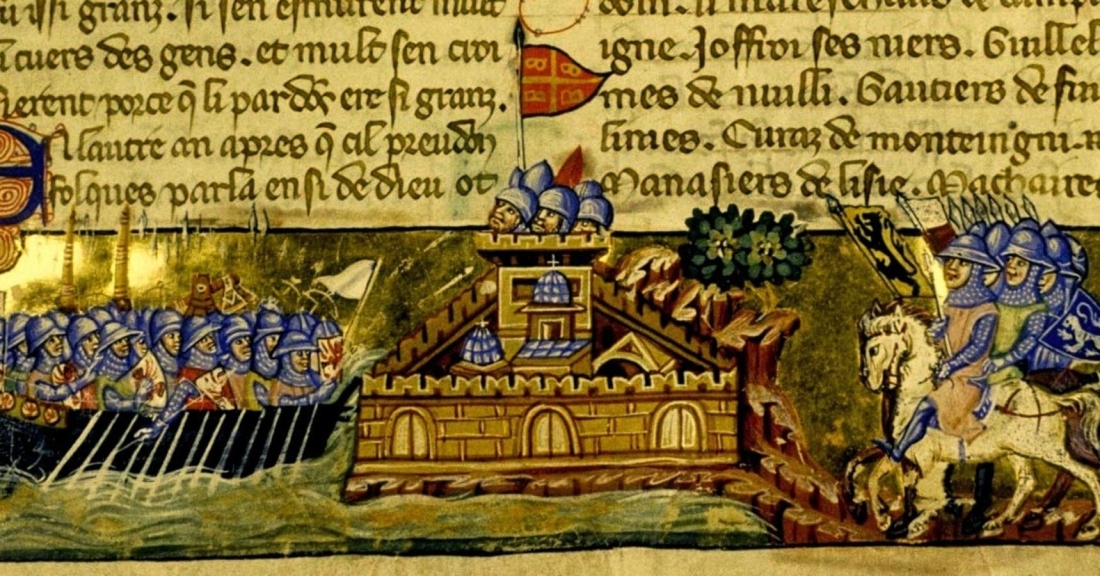 issi granz. si sen esmurent mult
cuers des gens. et mult sen croi
sierent porce q̃ li pardõs ere si granz.
A lautre an apres q̃ cil preudõ
folques parla ensi de dieu ot
dom. li mareschaus de Campa
igne. Joffroi ses niers. Guillel
mes de nuilli. Gautiers de fui
limes. Euraz de monteingni.
Manasiers de lisle. Machaires